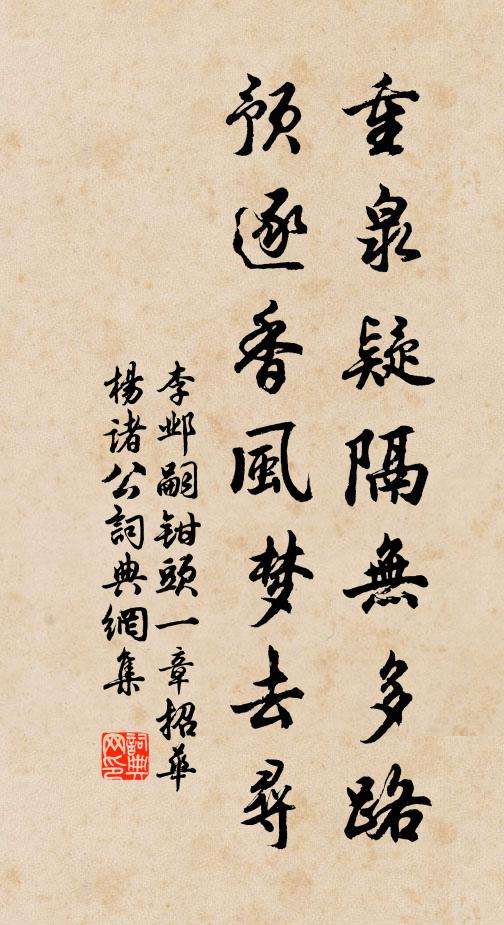 重泉疑隔無多路
預逐香風梦去尋
李邺嗣钳頭一章招華
楊诸公詞典網集
詞典网印